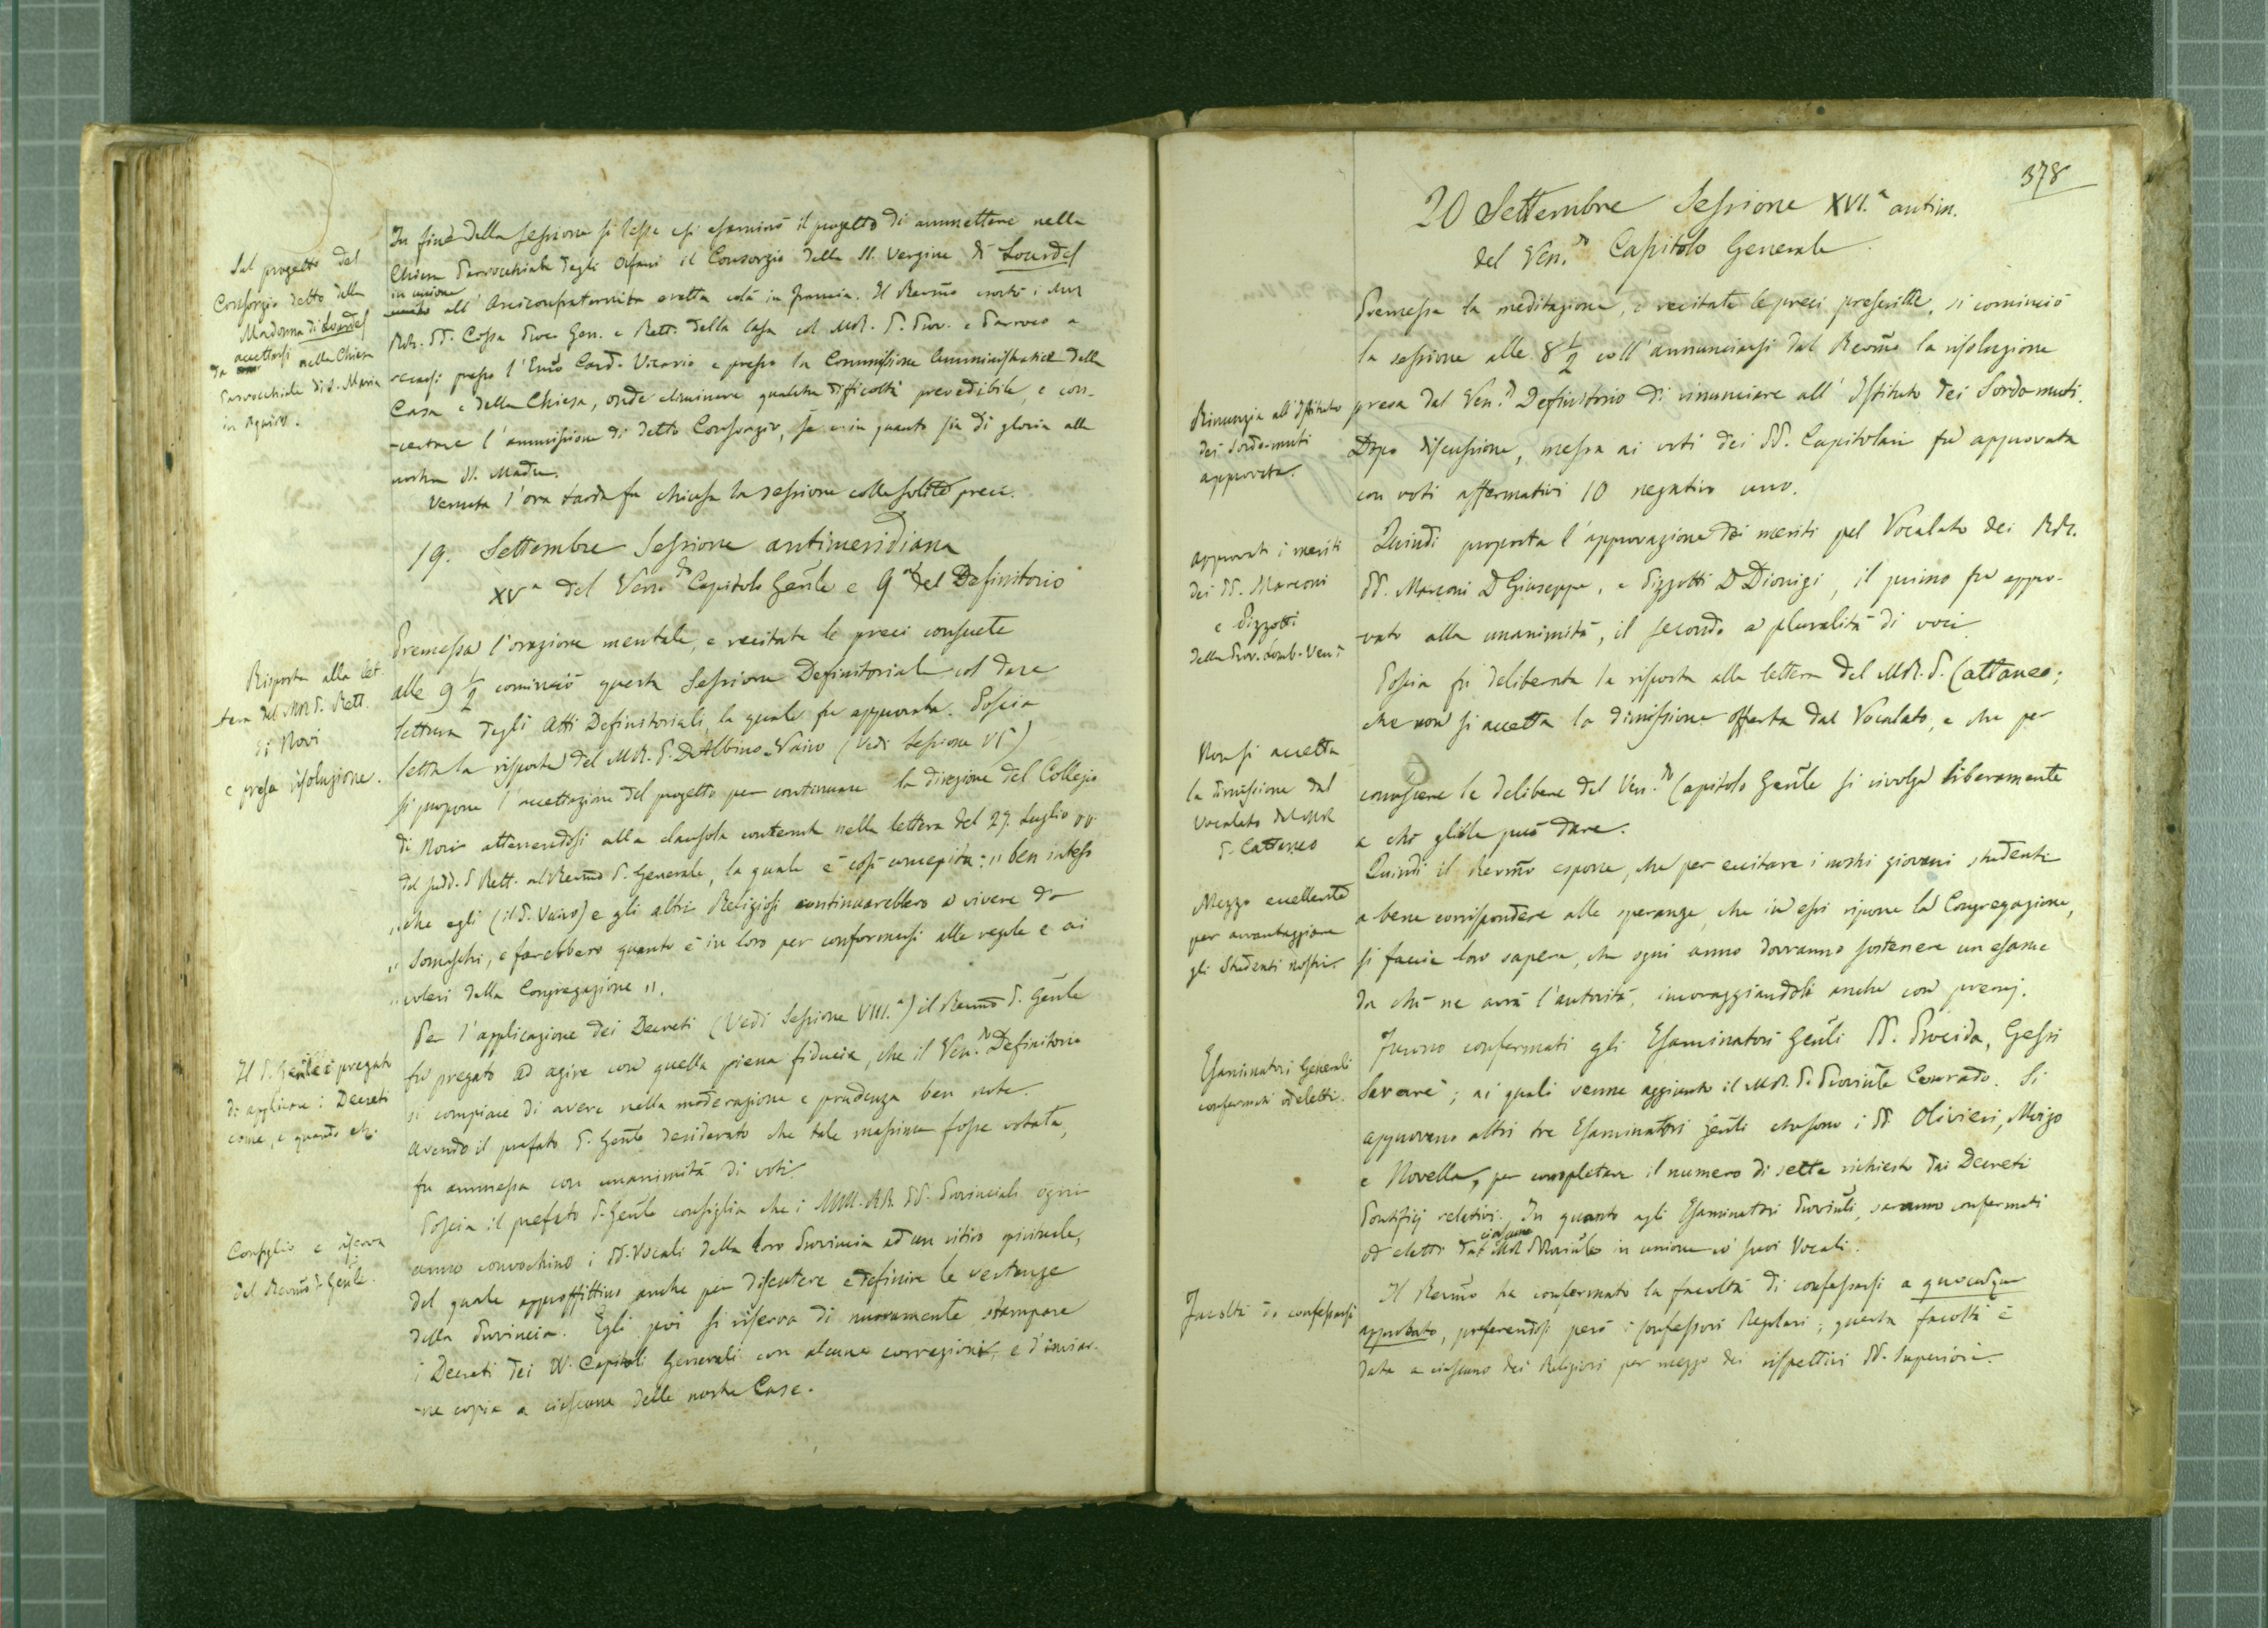 Sul progetto del
Consorzio detto della
Madonna di Lourdes
da accettarsi nella Chiesa
Parrocchiale di S. Maria
in Aquiro.
In fine della sessione si lesse e si esaminò il progetto di ammettere nella
Chiesa Parrocchiale degli Orfani il Consorzio della SS. Vergine di Lourdes
in unione
all'Arciconfraternita eretta colà in Francia. Il Revmo esortò i due
RR. PP. Cossa Proc. Gen. e Rett. della Casa col MR. P. Prov. e Parroco a
recarsi presso l'Emo Card. Vicario e presso la Commissione Amministratrice della
Casa e della Chiesa, onde eliminare qualche difficoltà prevedibile, e con-
-certare l'ammissione di detto Consorzio, se e in quanto sia di gloria alla
nostra SS. Madre.
Venuta l'ora tarda fu chiusa la sessione colle solite preci.
19. Settembre Sessione antimeridiana
XVa del Ven.do Capitolo Gen̄le e 9a del Definitorio
Premessa l'orazione mentale, e recitate le preci consuete
alle 9 1/2 cominciò questa Sessione Definitoriale col dare
lettura degli Atti Definitoriali, la quale fu approvata. Poscia
Risposta alla let-
-tera del MR P. Rett.
di Novi
e presa risoluzione.
letta la risposta del MR. P. D Albino Vairo (Vedi Sessione VIa)
si propone l'accettazione del progetto per continuare la direzione del Collegio
di Novi attenendosi alla clausola contenuta nella lettera del 27. Luglio pp.
del sudd. P. Rett. al Revmo P. Generale, la quale è così concepita: „ ben inteso
„ che egli (il P. Vairo) e gli altri Religiosi continuarebbero a vivere da
„ Somaschi, e farebbero quanto è in loro per conformarsi alle regole e ai
„ voleri della Congregazione „.
Il P. Gen̄le è pregato
di applicare i Decreti
come, e quando etc.
Per l'applicazione dei Decreti (Vedi Sessione VIII.a) il Revmo P. Gen̄le
fu pregato ad agire con quella piena fiducia, che il Ven.do Definitorio
si compiace di avere nella moderazione e prudenza ben note.
Avendo il prefato P. Gen̄le desiderato che tale massima fosse votata,
fu ammessa con unanimità di voti.
Consiglio e riserva
del Revmo P. Gen̄le.
Poscia il prefato P. Gen̄le consiglia che i MM. RR. PP. Provinciali ogni
anno convochino i PP. Vocali della loro Provincia ad un ritiro spirituale,
del quale approffittino anche per discutere e definire le vertenze
della Provincia. Egli poi si riserva di nuovamente stampare
i Decreti dei VV. Capitoli Generali con alcune correzioni, e d'inviar-
-ne copia a ciascuna delle nostre Case.
378
20 Settembre Sessione XVI.a antim.
del Ven.do Capitolo Generale.
Premessa la meditazione, e recitate le preci prescritte, si cominciò
la sessione alle 8 1/2 coll'annunciarsi dal Revmo la risoluzione
Rinunzia all'Istituto
dei Sordo-muti
approvata.
presa dal Ven.do Definitorio di rinunciare all'Istituto dei Sordo muti.
Dopo discussione, messa ai voti dei PP. Capitolari fu approvata
con voti affermativi 10 negativo uno.
Approvati i meriti
dei PP. Marconi
e Pizzotti
della Prov. Lomb-Ven.a
Quindi proposta l'approvazione dei meriti pel Vocalato dei RR.
PP. Marconi D Giuseppe, e Pizzotti D Dionigi, il primo fu appro-
-vato alla unanimità, il secondo a pluralità di voci.
Non si accetta
la dimissione dal
Vocalato del MR
P. Cattaneo
Poscia fu deliberata la risposta alla lettera del MR. P. Cattaneo;
che non si accetta la dimissione offerta dal Vocalato, e che per
conoscere le delibere del Ven.do Capitolo Gen̄le si rivolga liberamente
a chi gliele può dare.
Mezzo eccellente
per avvantaggiare
gli Studenti nostri.
Quindi il Revmo espone, che per eccitare i nostri giovani studenti
a bene corrispondere alle speranze, che in essi ripone la Congregazione,
si faccia loro sapere, che ogni anno dovranno sostenere un esame
da chi ne avrà l'autorità, incoraggiandoli anche con premj.
Esaminatori Generali
confermati ed eletti.
Furono confermati gli Esaminatori Gen̄li PP. Procida, Gessi
Savarè; ai quali venne aggiunto il MR. P. Provin̄le Conrado. Si
approvano altri tre Esaminatori Gen̄li che sono i PP. Olivieri, Moizo
e Novella, per completare il numero di sette richiesto dai Decreti
Pontificj relativi. In quanto agli Esaminatori Provin̄li, saranno confermati
ciascuno
od eletti dal MR P Provin̄le in unione co' suoi Vocali.
Facoltà di confessarsi
Il Revmo ha confermato la facoltà di confessarsi a quocumque
approbato, preferendosi però i confessori Regolari; questa facoltà è
data a ciascuno dei Religiosi per mezzo dei rispettivi PP. Superiori.